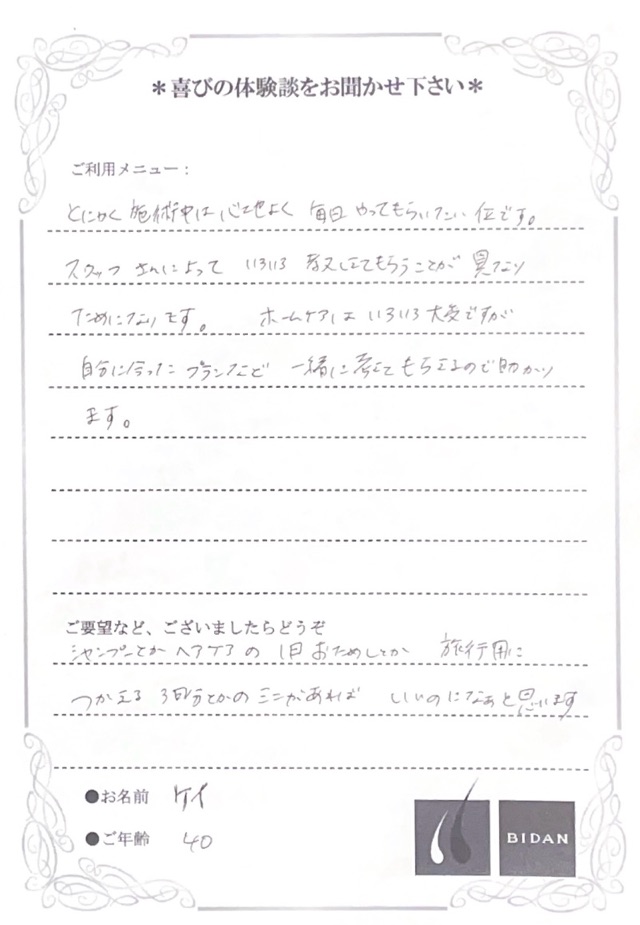 ＊喜びの体験談をお聞かせ下さい＊
ご利用メニュー：
とにかく 施術中は 心地よく 毎日 やってもらいたい 位です。
スタッフ さんによって いろいろ 教えてもらうことが 異なり
ためになります。 ホームケアは いろいろ 大変ですが
自分に合った プランなど 一緒に 考えて もらえるので 助かり
ます。
ご要望など、ございましたらどうぞ
シャンプーとか ヘアケアの 1日 おためしとか 旅行用に
つかえる 3日分とかの ミニがあれば いいのになぁと 思います
●お名前 ケイ
●ご年齢 40
BIDAN